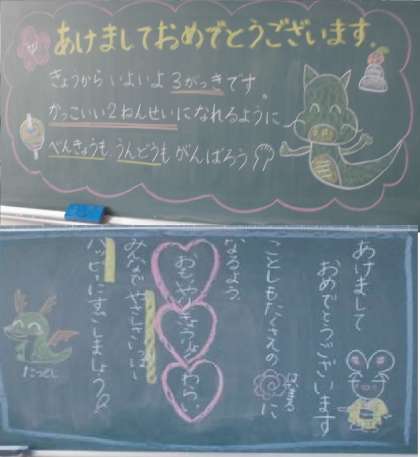 あけましておめでとうございます。
きょうから いよいよ 3がっきです。
かっこいい2ねんせいになれるように
べんきょうも うんどうも がんばろう
あけまして
おめでとうございます
ことしもたくさんの
に
なるよう
おもいやり
きょうりょく
わらい
みんなでやさしさいっぱい
ハッピーにすごしましょう